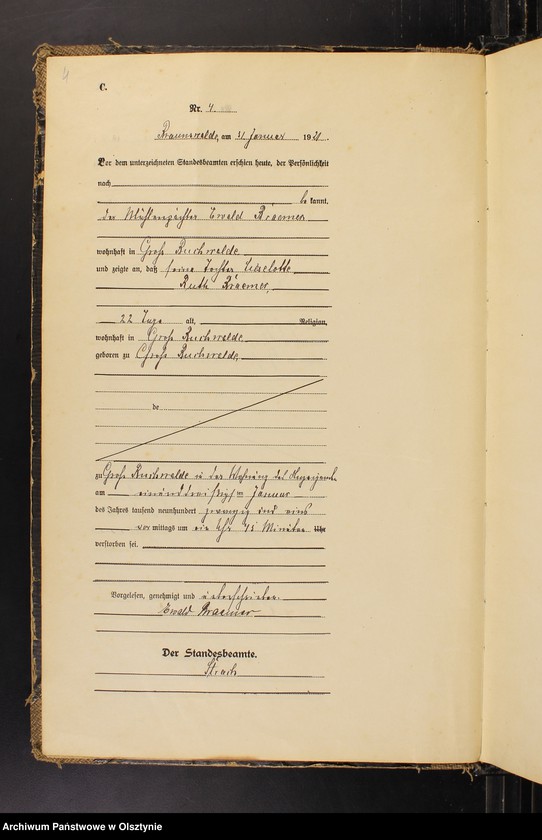 4
C.
Nr. 4.
Braunswalde, am 31. Januar 1921.
Vor dem unterzeichneten Standesbeamten erschien heute, der Persönlichkeit
nach
be kannt,
der Mühlenpächter Ewald Braemer
wohnhaft in Groß Buchwalde
und zeigte an, daß seine Tochter Liselotte
Ruth Braemer,
22 Tage alt, Religion,
wohnhaft in Groß Buchwalde
geboren zu Groß Buchwalde,
de
zu Groß Buchwalde in der Wohnung des
am einunddreißigsten Januar
des Jahres tausend neunhundert zwanzig und eins
vor mittags um ein Uhr 45 Minuten Uhr
verstorben sei.
Vorgelesen, genehmigt und unterschrieben.
Ewald Braemer
Der Standesbeamte.
Archiwum Państwowe w Olsztynie